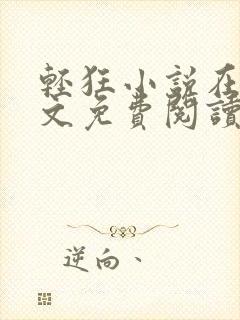 輕狂小說在
文免費閱讀
逆向、